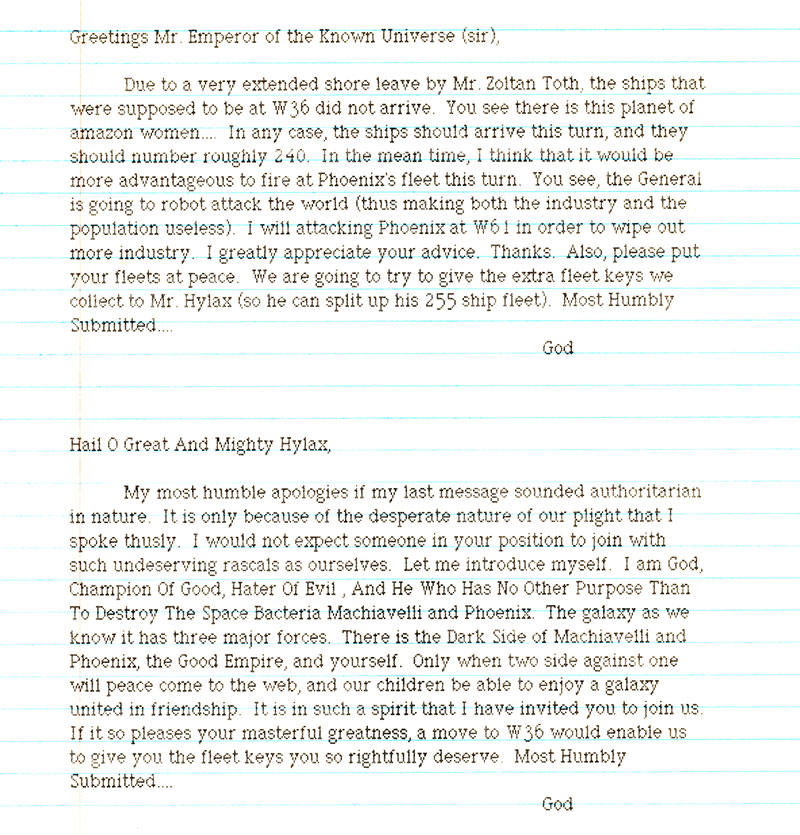 Greetings Mr. Emperor of the Known Universe (sir),
Due to a very extended shore leave by Mr. Zoltan Toth, the ships that
were supposed to be at W36 did not arrive. You see there is this planet of
amazon women.... In any case, the ships should arrive this turn, and they
should number roughly 240. In the mean time, I think that it would be
more advantageous to fire at Phoenix's fleet this turn. You see, the General
is going to robot attack the world (thus making both the industry and the
population useless). I will attacking Phoenix at W61 in order to wipe out
more industry. I greatly appreciate your advice. Thanks. Also, please put
your fleets at peace. We are going to try to give the extra fleet keys we
collect to Mr. Hylax (so he can split up his 255 ship fleet). Most Humbly
Submitted....
God
Hail O Great And Mighty Hylax,
My most humble apologies if my last message sounded authoritarian
in nature. It is only because of the desperate nature of our plight that I
spoke thusly. I would not expect someone in your position to join with
such undeserving rascals as ourselves. Let me introduce myself. I am God,
Champion Of Good, Hater Of Evil , And He Who Has No Other Purpose Than
To Destroy The Space Bacteria Machiavelli and Phoenix. The galaxy as we
know it has three major forces. There is the Dark Side of Machiavelli and
Phoenix, the Good Empire, and yourself. Only when two side against one
will peace come to the web, and our children be able to enjoy a galaxy
united in friendship. It is in such a spirit that I have invited you to join us.
If it so pleases your masterful greatness, a move to W36 would enable us
to give you the fleet keys you so rightfully deserve. Most Humbly
Submitted....
God